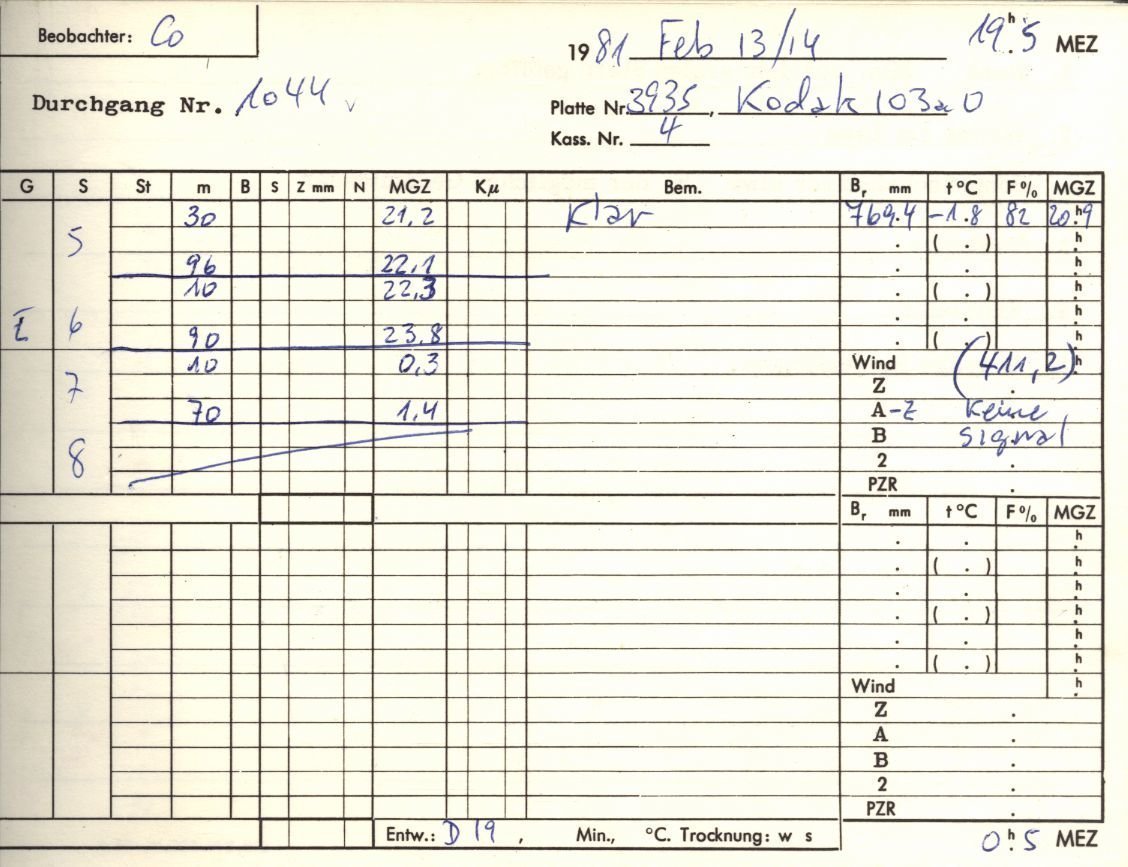 Beobachter: Co
1981 Feb 13/14 19h.5 MEZ
Durchgang Nr. 1044
Platte Nr. 3935, Kodak 103a0
Kass. Nr. 4
G S St m B S Z mm N MGZ Kμ Bem. Br mm t °C F% MGZ
30 21,2 Klar 769.4 -1.8 82 20h.9
5 . ( . ) h.
96 22,1 . . h.
10 22,3 . ( . ) h.
E 6 . . h.
90 23,8 . ( . ) h.
10 0,3 Wind (411,2) h.
7 Z .
70 1,4 A-Z Keine
B Signal
8 2 .
PZR .
Br mm t °C F% MGZ
. . h.
. ( . ) h.
. . h.
. ( . ) h.
. . h.
. ( . ) h.
Wind h.
Z .
A .
B .
2 .
PZR
Entw.: D 19, Min., °C. Trocknung: w s
0h.5 MEZ